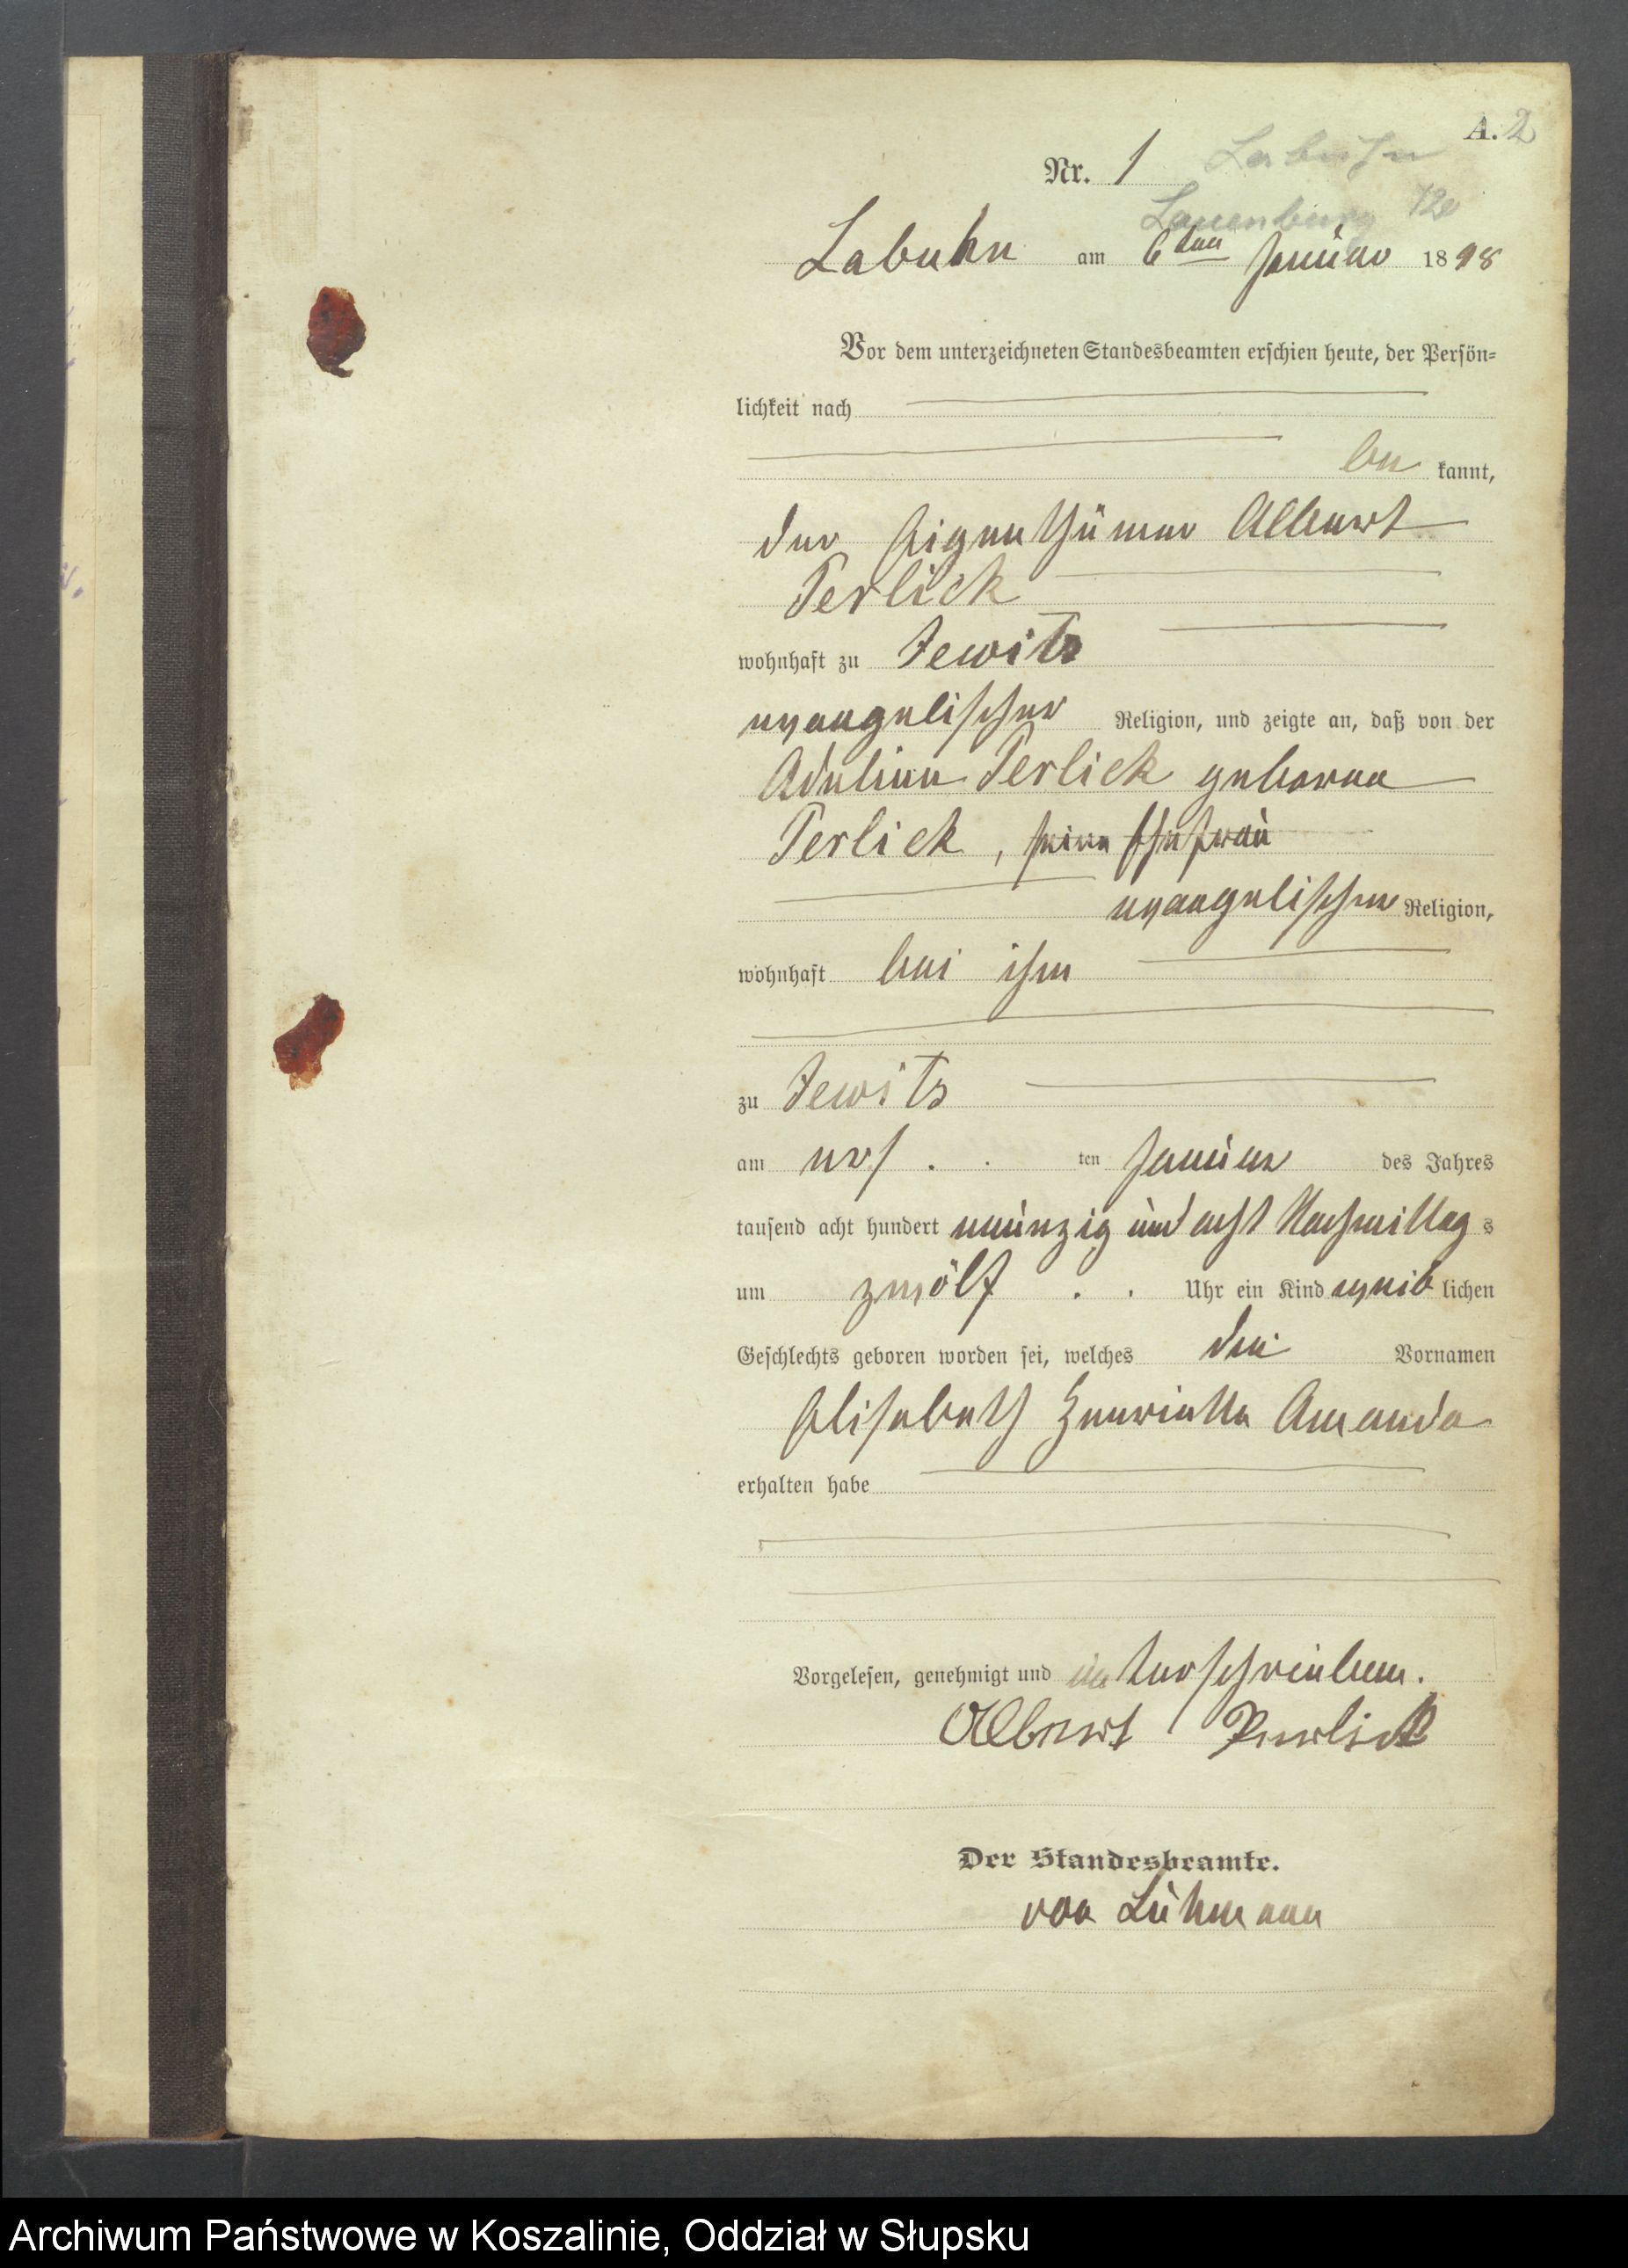 A. 2
Labuhn
Nr. 1
Lauenburg
Labuhn am 6ten Januar 1898
Vor dem unterzeichneten Standesbeamten erschien heute, der Persön-
lichkeit nach
be kannt,
der Eigenthümer Albert
Perlick
wohnhaft zu Jewitz
evangelischer Religion, und zeigte an, daß von der
Adeline Perlick geborne
Perlick, seine Ehefrau
evangelischer Religion,
wohnhaft bei ihm
zu Jewitz
am ers ten Januar des Jahres
tausend acht hundert neunzig und acht Nachmittag s
um zwölf Uhr ein Kind weib lichen
Geschlechts geboren worden sei, welches die Vornamen
Elisabeth Henriette Amanda
erhalten habe
Vorgelesen, genehmigt und unterschrieben.
Albert Perlick
Der Standesbeamte.
von Lühmann
Archiwum Państwowe w Koszalinie, Oddział w Słupsku